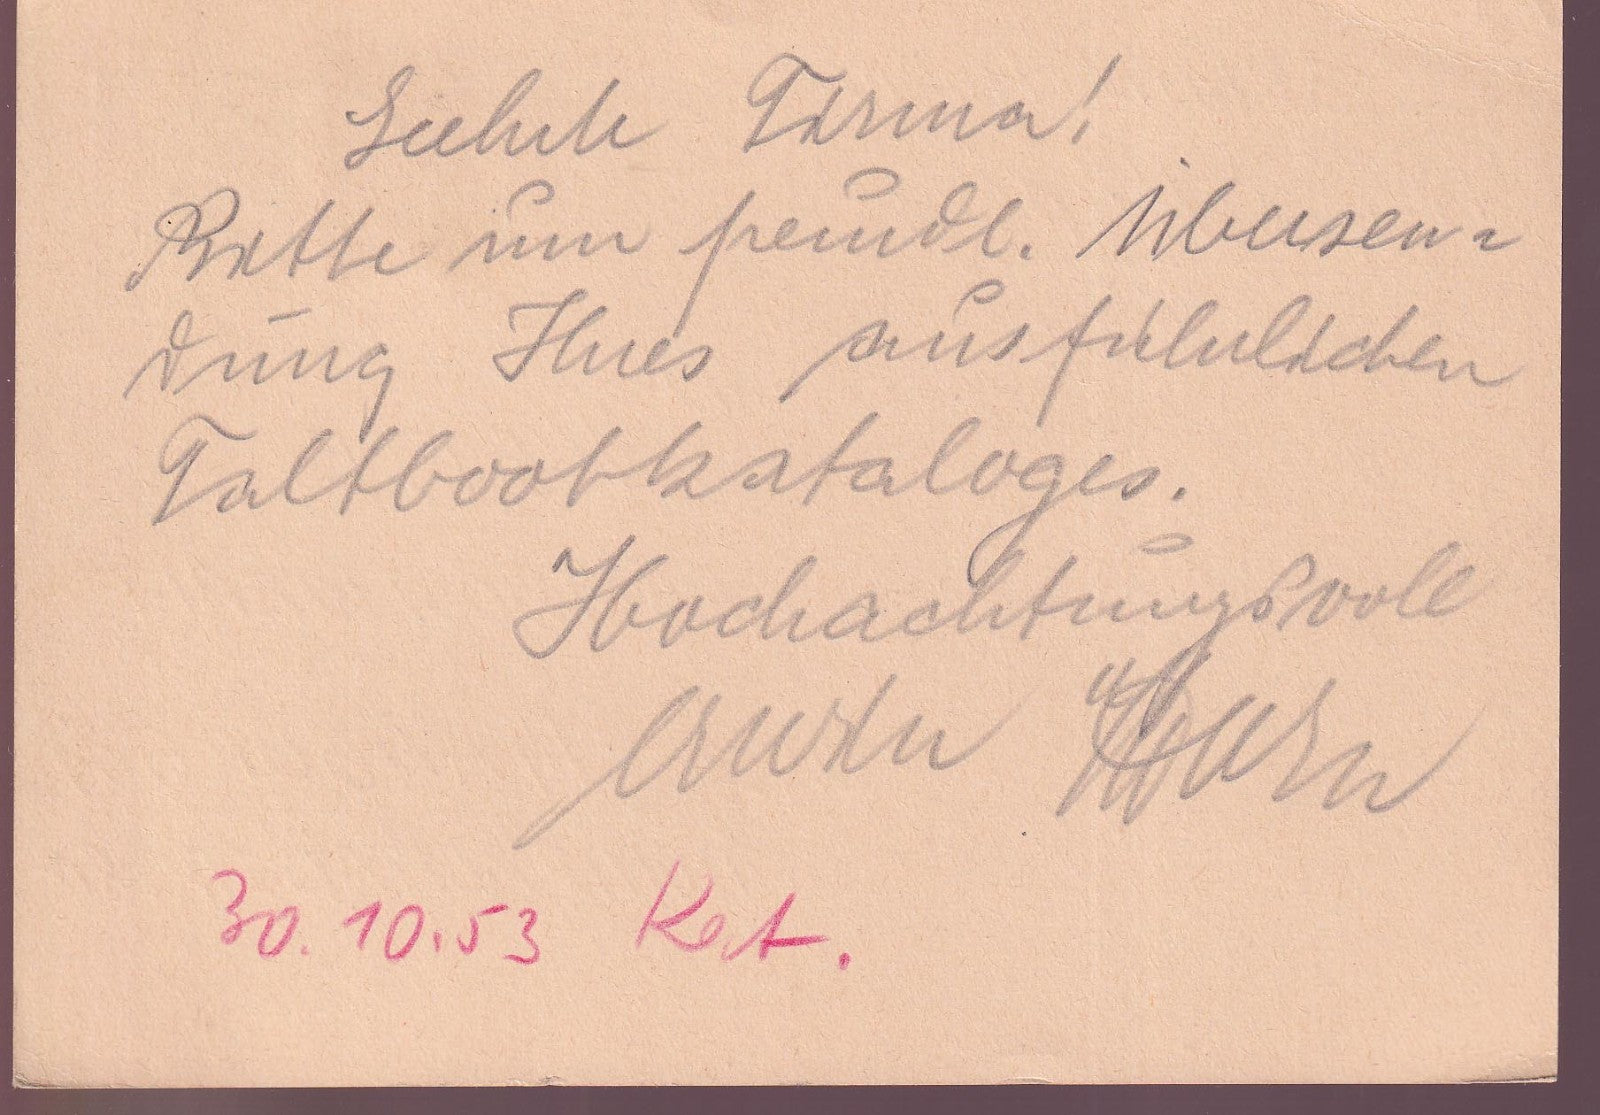 Geehrte Firma!
Bitte um freundl. Übersen=
dung Ihres ausführlichen
Faltbootkataloges.
Hochachtungsvoll
Erwin
30.10.53 Kat.